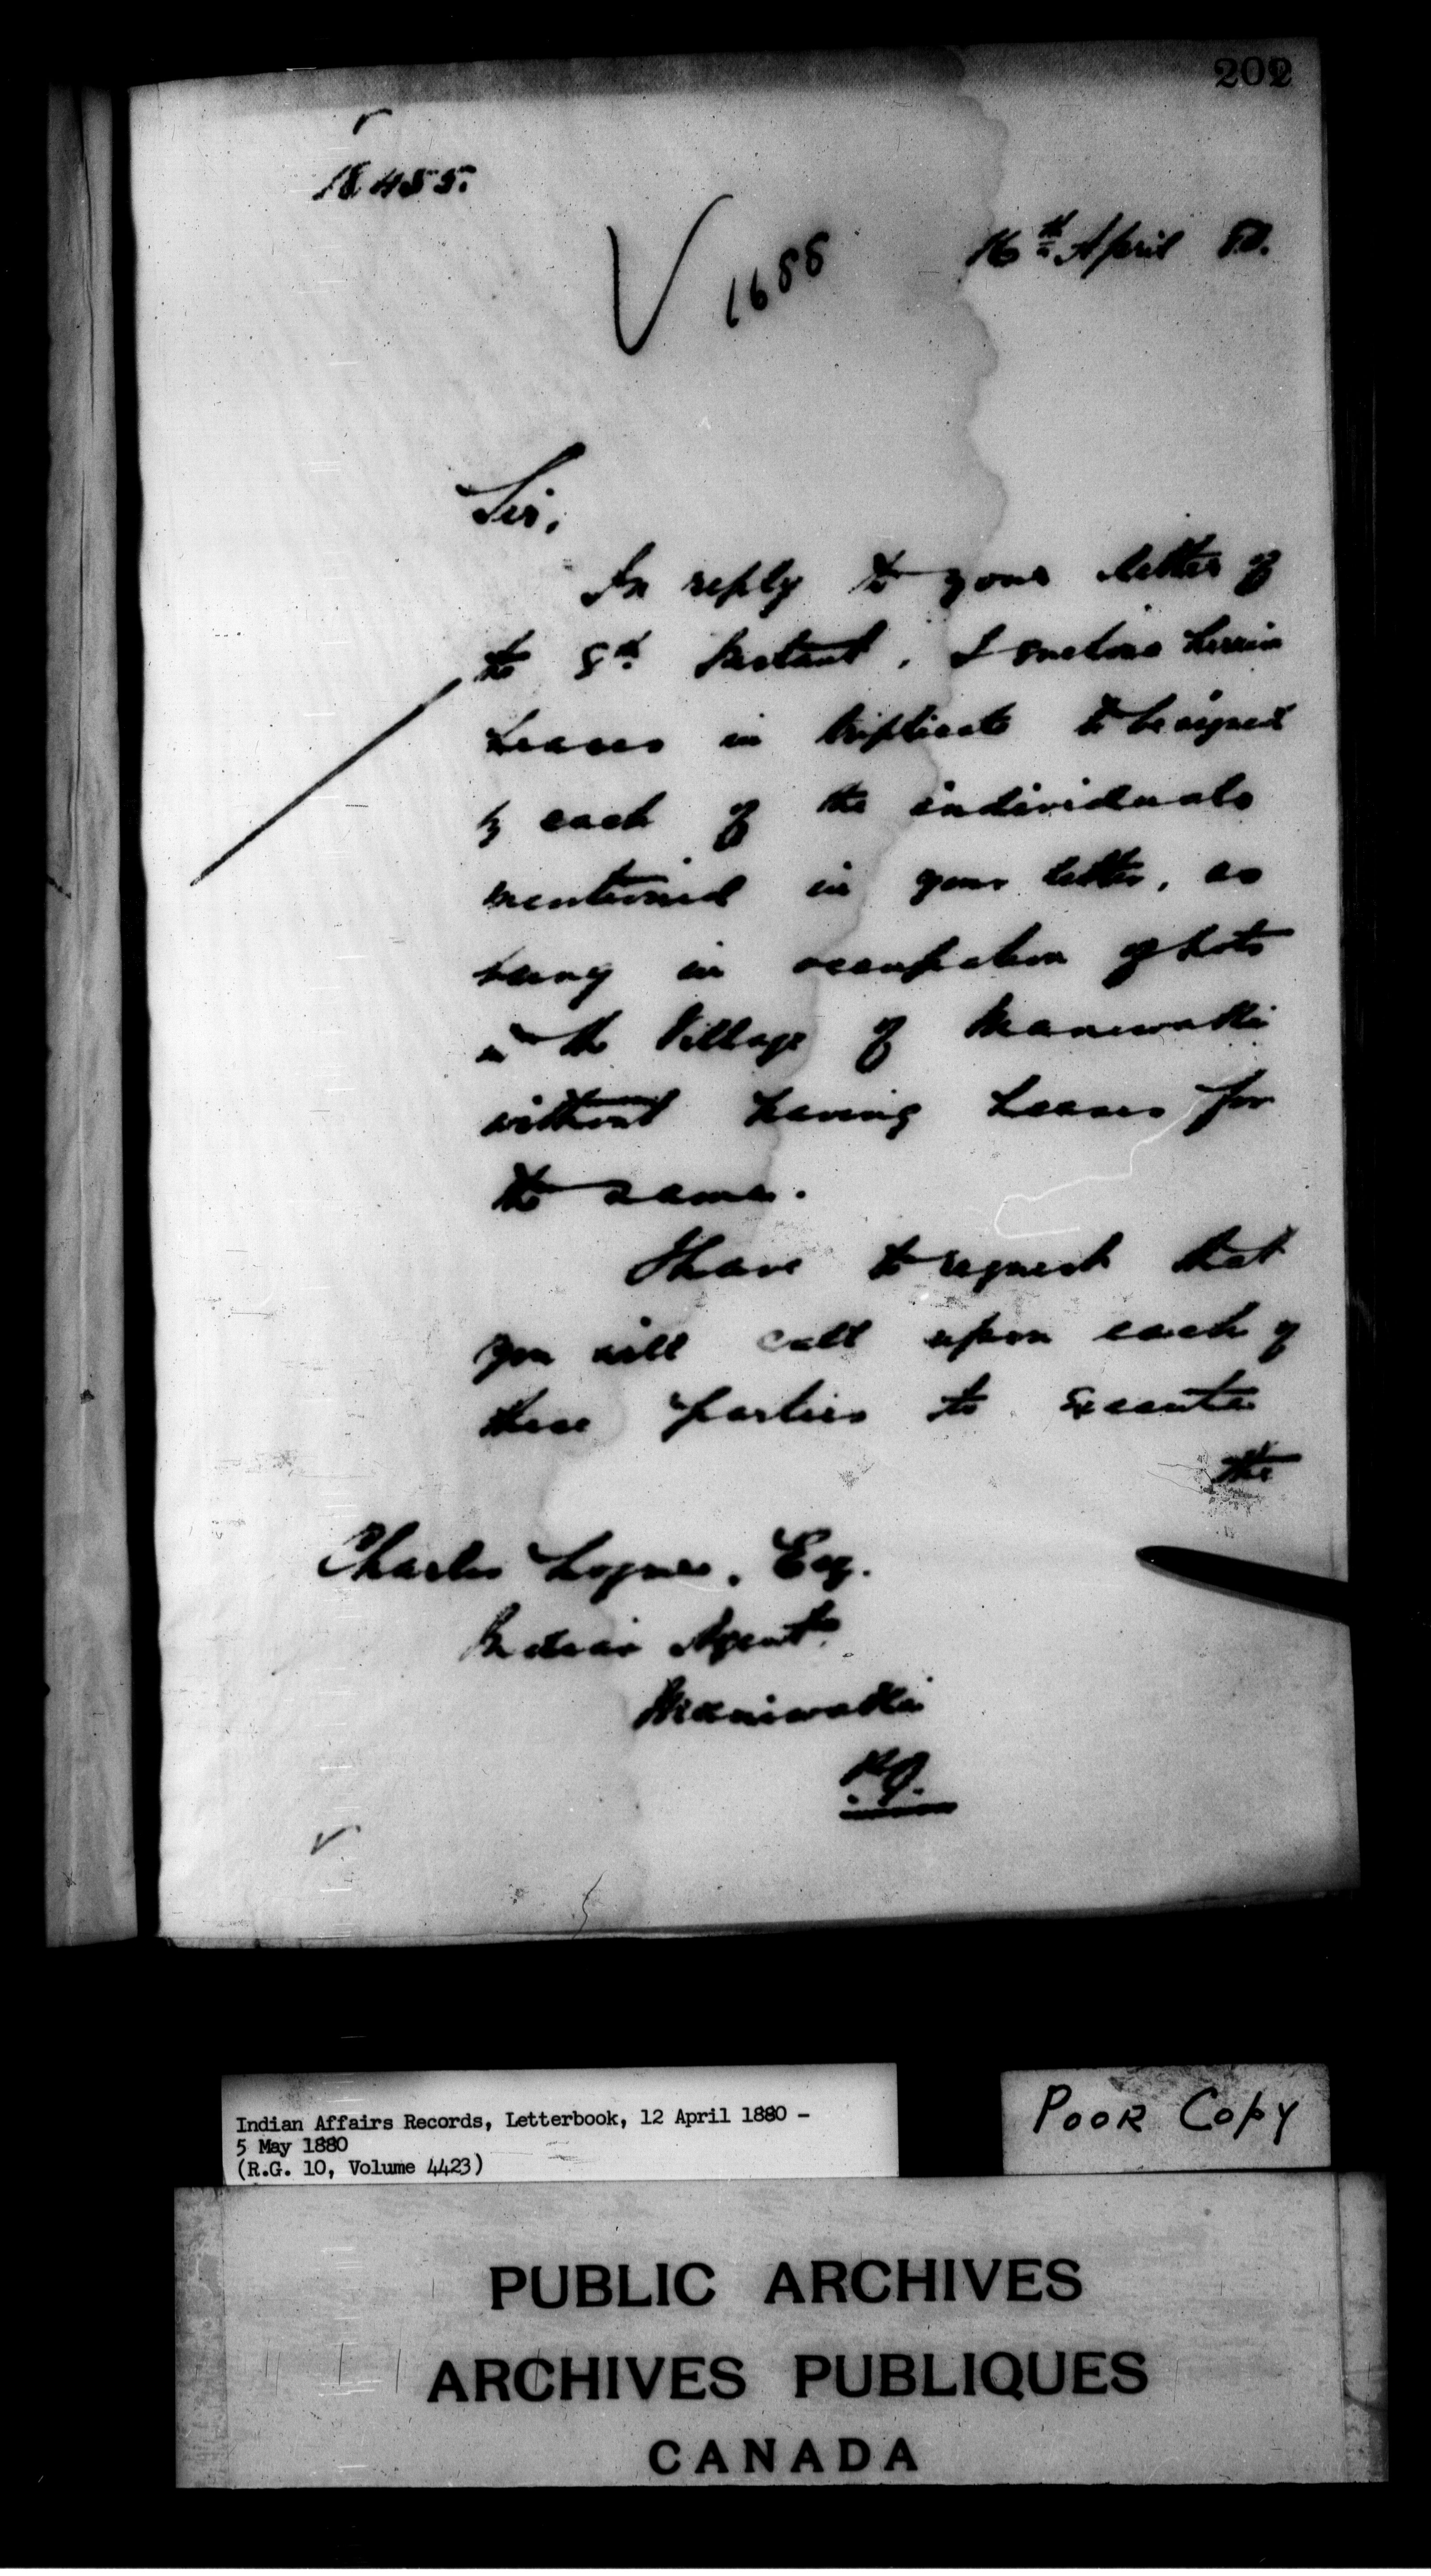 202
18455.
1688
16th April 80.
Sir,
In reply to your letter of
the 8th Instant, I enclose herein
Leases in triplicate to be signed
by each of the individuals
mentioned in your letter, as
being in occupation of Lots
in the Village of Maniwaki
without having Leases for
the same.
I have to request that
you will call upon each of
these parties to execute
the
Charles Logue, Esq.
Indian Agent
Maniwaki
P.Q.
Indian Affairs Records, Letterbook, 12 April 1880 -
5 May 1880
(R.G. 10, Volume 4423)
POOR COPY
PUBLIC ARCHIVES
ARCHIVES PUBLIQUES
CANADA